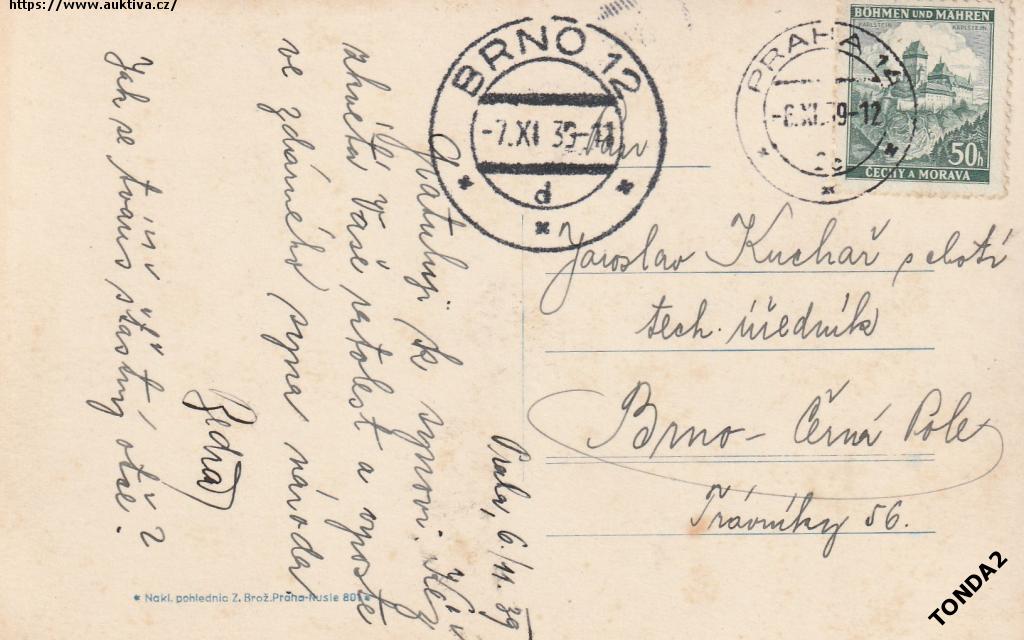 https://www.auktiva.cz/
BÖHMEN UND MÄHREN
KARLSTEIN KARLŠTEJN
50h
ČECHY A MORAVA
PRAHA 14
-6.XI.39-12
BRNO 12
-7.XI 39-11
d
Pan
Jaroslav Kuchař
tech. úředník
Brno - Černá Pole
Trávníky 56.
Praha, 6./11. 39
Gratuluji k synovi. Kéž
Vaše ratolest a
ve zdárného syna národa
Jak se tváříš šťastný otče?
* Nakl. pohlednic Z. Brož. Praha-Nusle 801 *
TONDA2